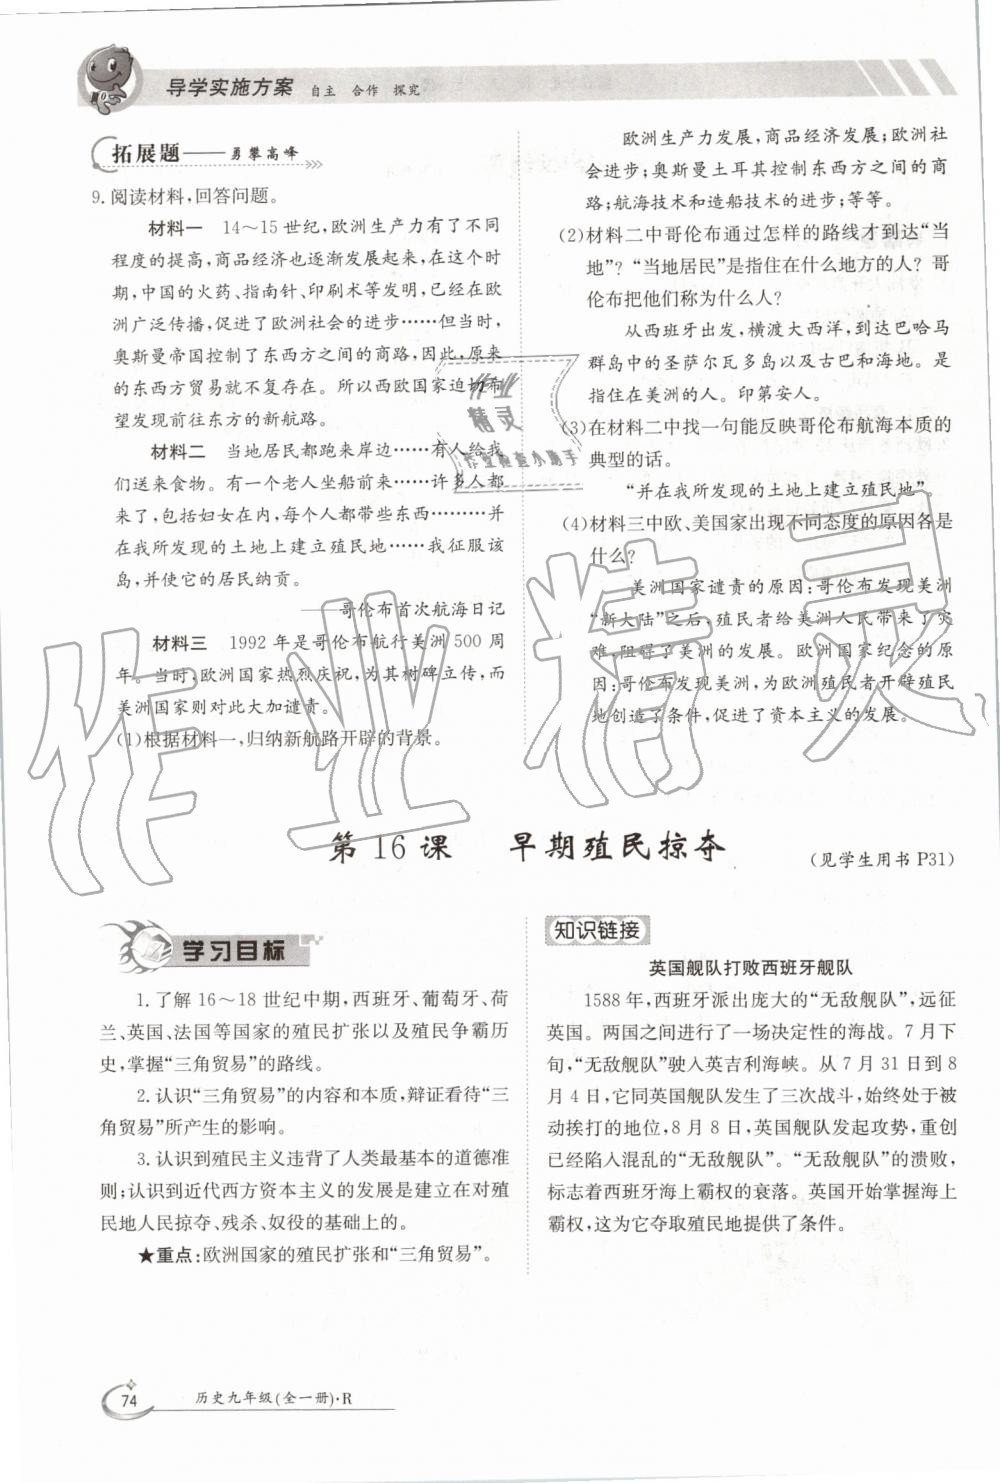 导学实施方案 自主 合作 探究
拓展题——勇攀高峰
9.阅读材料,回答问题。
材料一 14～15世纪,欧洲生产力有了不同
程度的提高,商品经济也逐渐发展起来,在这个时
期,中国的火药、指南针、印刷术等发明,已经在欧
洲广泛传播,促进了欧洲社会的进步……但当时,
奥斯曼帝国控制了东西方之间的商路,因此,原来
的东西方贸易就不复存在。所以西欧国家迫切希
望发现前往东方的新航路。
材料二 当地居民都跑来岸边……有人给我
们送来食物。有一个老人坐船前来……许多人都
来了,包括妇女在内,每个人都带些东西………并
在我所发现的土地上建立殖民地……我征服该
岛,并使它的居民纳贡。
——哥伦布首次航海日记
材料三 1992年是哥伦布航行美洲500周
年。当时,欧洲国家热烈庆祝,为其树碑立传,而
美洲国家则对此大加谴责。
(1)根据材料一,归纳新航路开辟的背景。
欧洲生产力发展,商品经济发展;欧洲社
会进步;奥斯曼土耳其控制东西方之间的商
路;航海技术和造船技术的进步;等等。
(2)材料二中哥伦布通过怎样的路线才到达“当
地”?“当地居民”是指住在什么地方的人?哥
伦布把他们称为什么人?
从西班牙出发,横渡大西洋,到达巴哈马
群岛中的圣萨尔瓦多岛以及古巴和海地。是
指住在美洲的人。印第安人。
(3)在材料二中找一句能反映哥伦布航海本质的
典型的话。
“并在我所发现的土地上建立殖民地”
(4)材料三中欧、美国家出现不同态度的原因各是
什么?
美洲国家谴责的原因:哥伦布发现美洲
“新大陆”之后,殖民者给美洲人民带来了灾
难,阻碍了美洲的发展。欧洲国家纪念的原
因:哥伦布发现美洲,为欧洲殖民者开辟殖民
地创造了条件,促进了资本主义的发展。
第16课 早期殖民掠夺
(见学生用书P31)
学习目标
1.了解16～18世纪中期,西班牙、葡萄牙、荷
兰、英国、法国等国家的殖民扩张以及殖民争霸历
史,掌握“三角贸易”的路线。
2.认识“三角贸易”的内容和本质,辩证看待“三
角贸易”所产生的影响。
3.认识到殖民主义违背了人类最基本的道德准
则;认识到近代西方资本主义的发展是建立在对殖
民地人民掠夺、残杀、奴役的基础上的。
★重点:欧洲国家的殖民扩张和“三角贸易”。
知识链接
英国舰队打败西班牙舰队
1588年,西班牙派出庞大的“无敌舰队”,远征
英国。两国之间进行了一场决定性的海战。7月下
旬,“无敌舰队”驶入英吉利海峡。从7月31日到8
月4日,它同英国舰队发生了三次战斗,始终处于被
动挨打的地位,8月8日,英国舰队发起攻势,重创
已经陷入混乱的“无敌舰队”。“无敌舰队”的溃败,
标志着西班牙海上霸权的衰落。英国开始掌握海上
霸权,这为它夺取殖民地提供了条件。
74 历史九年级(全一册)·R
作业精灵
作业
精灵
作业检查小助手